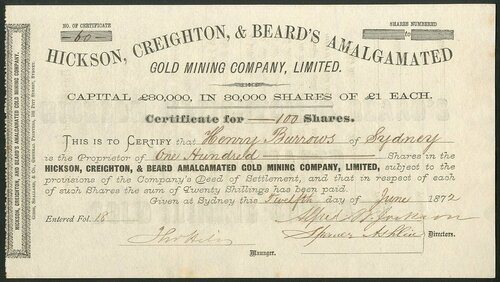 NO. OF CERTIFICATE
60
SHARES NUMBERED
to
HICKSON, CREIGHTON, & BEARD'S AMALGAMATED
GOLD MINING COMPANY, LIMITED.
CAPITAL £30,000, IN 30,000 SHARES OF £1 EACH.
Certificate for 100 Shares.
THIS IS TO CERTIFY that Henry Burrows of Sydney
is the Proprietor of One Hundred Shares in the
HICKSON, CREIGHTON, & BEARD AMALGAMATED GOLD MINING COMPANY, LIMITED, subject to the
provisions of the Company's Deed of Settlement, and that in respect of each
of such Shares the sum of Twenty Shillings has been paid.
Given at Sydney this Twelfth day of June 1872
Entered Fol. 18
Directors.
Manager.
HICKSON, CREIGHTON, AND BEARD'S AMALGAMATED GOLD MINING COMPANY, LIMITED.